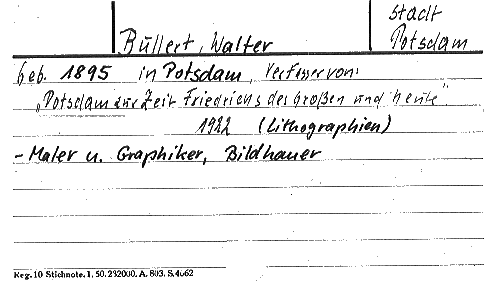 Stadt
Büllert, Walter Potsdam
geb. 1895 in Potsdam, Verfasser von:
"Potsdam zur Zeit Friedrichs des Großen und heute"
1922 (Lithographien)
- Maler u. Graphiker, Bildhauer
Reg. 10 Stichnote. I. 50. 232000. A. 803. S. 4062